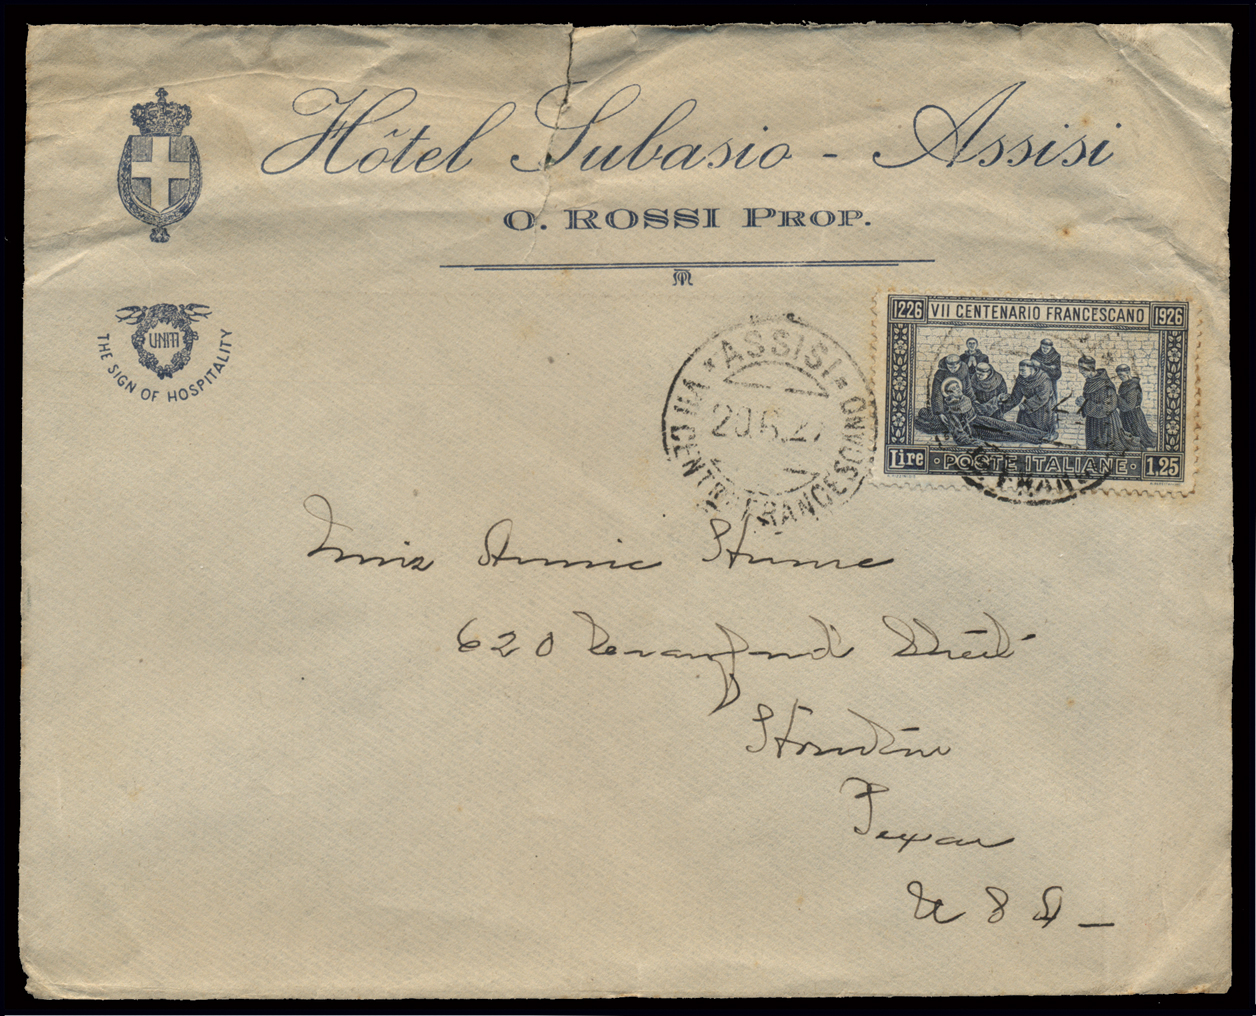 Hôtel Subasio - Assisi
O. ROSSI PROP.
UNITI
THE SIGN OF HOSPITALITY
1226 VII CENTENARIO FRANCESCANO 1926
Lire POSTE ITALIANE 1,25
* ASSISI *
VII CENTEN. FRANCESCANO
20.6.27
Miss Annie Hume
620 Street
Houston
Texas
U S A